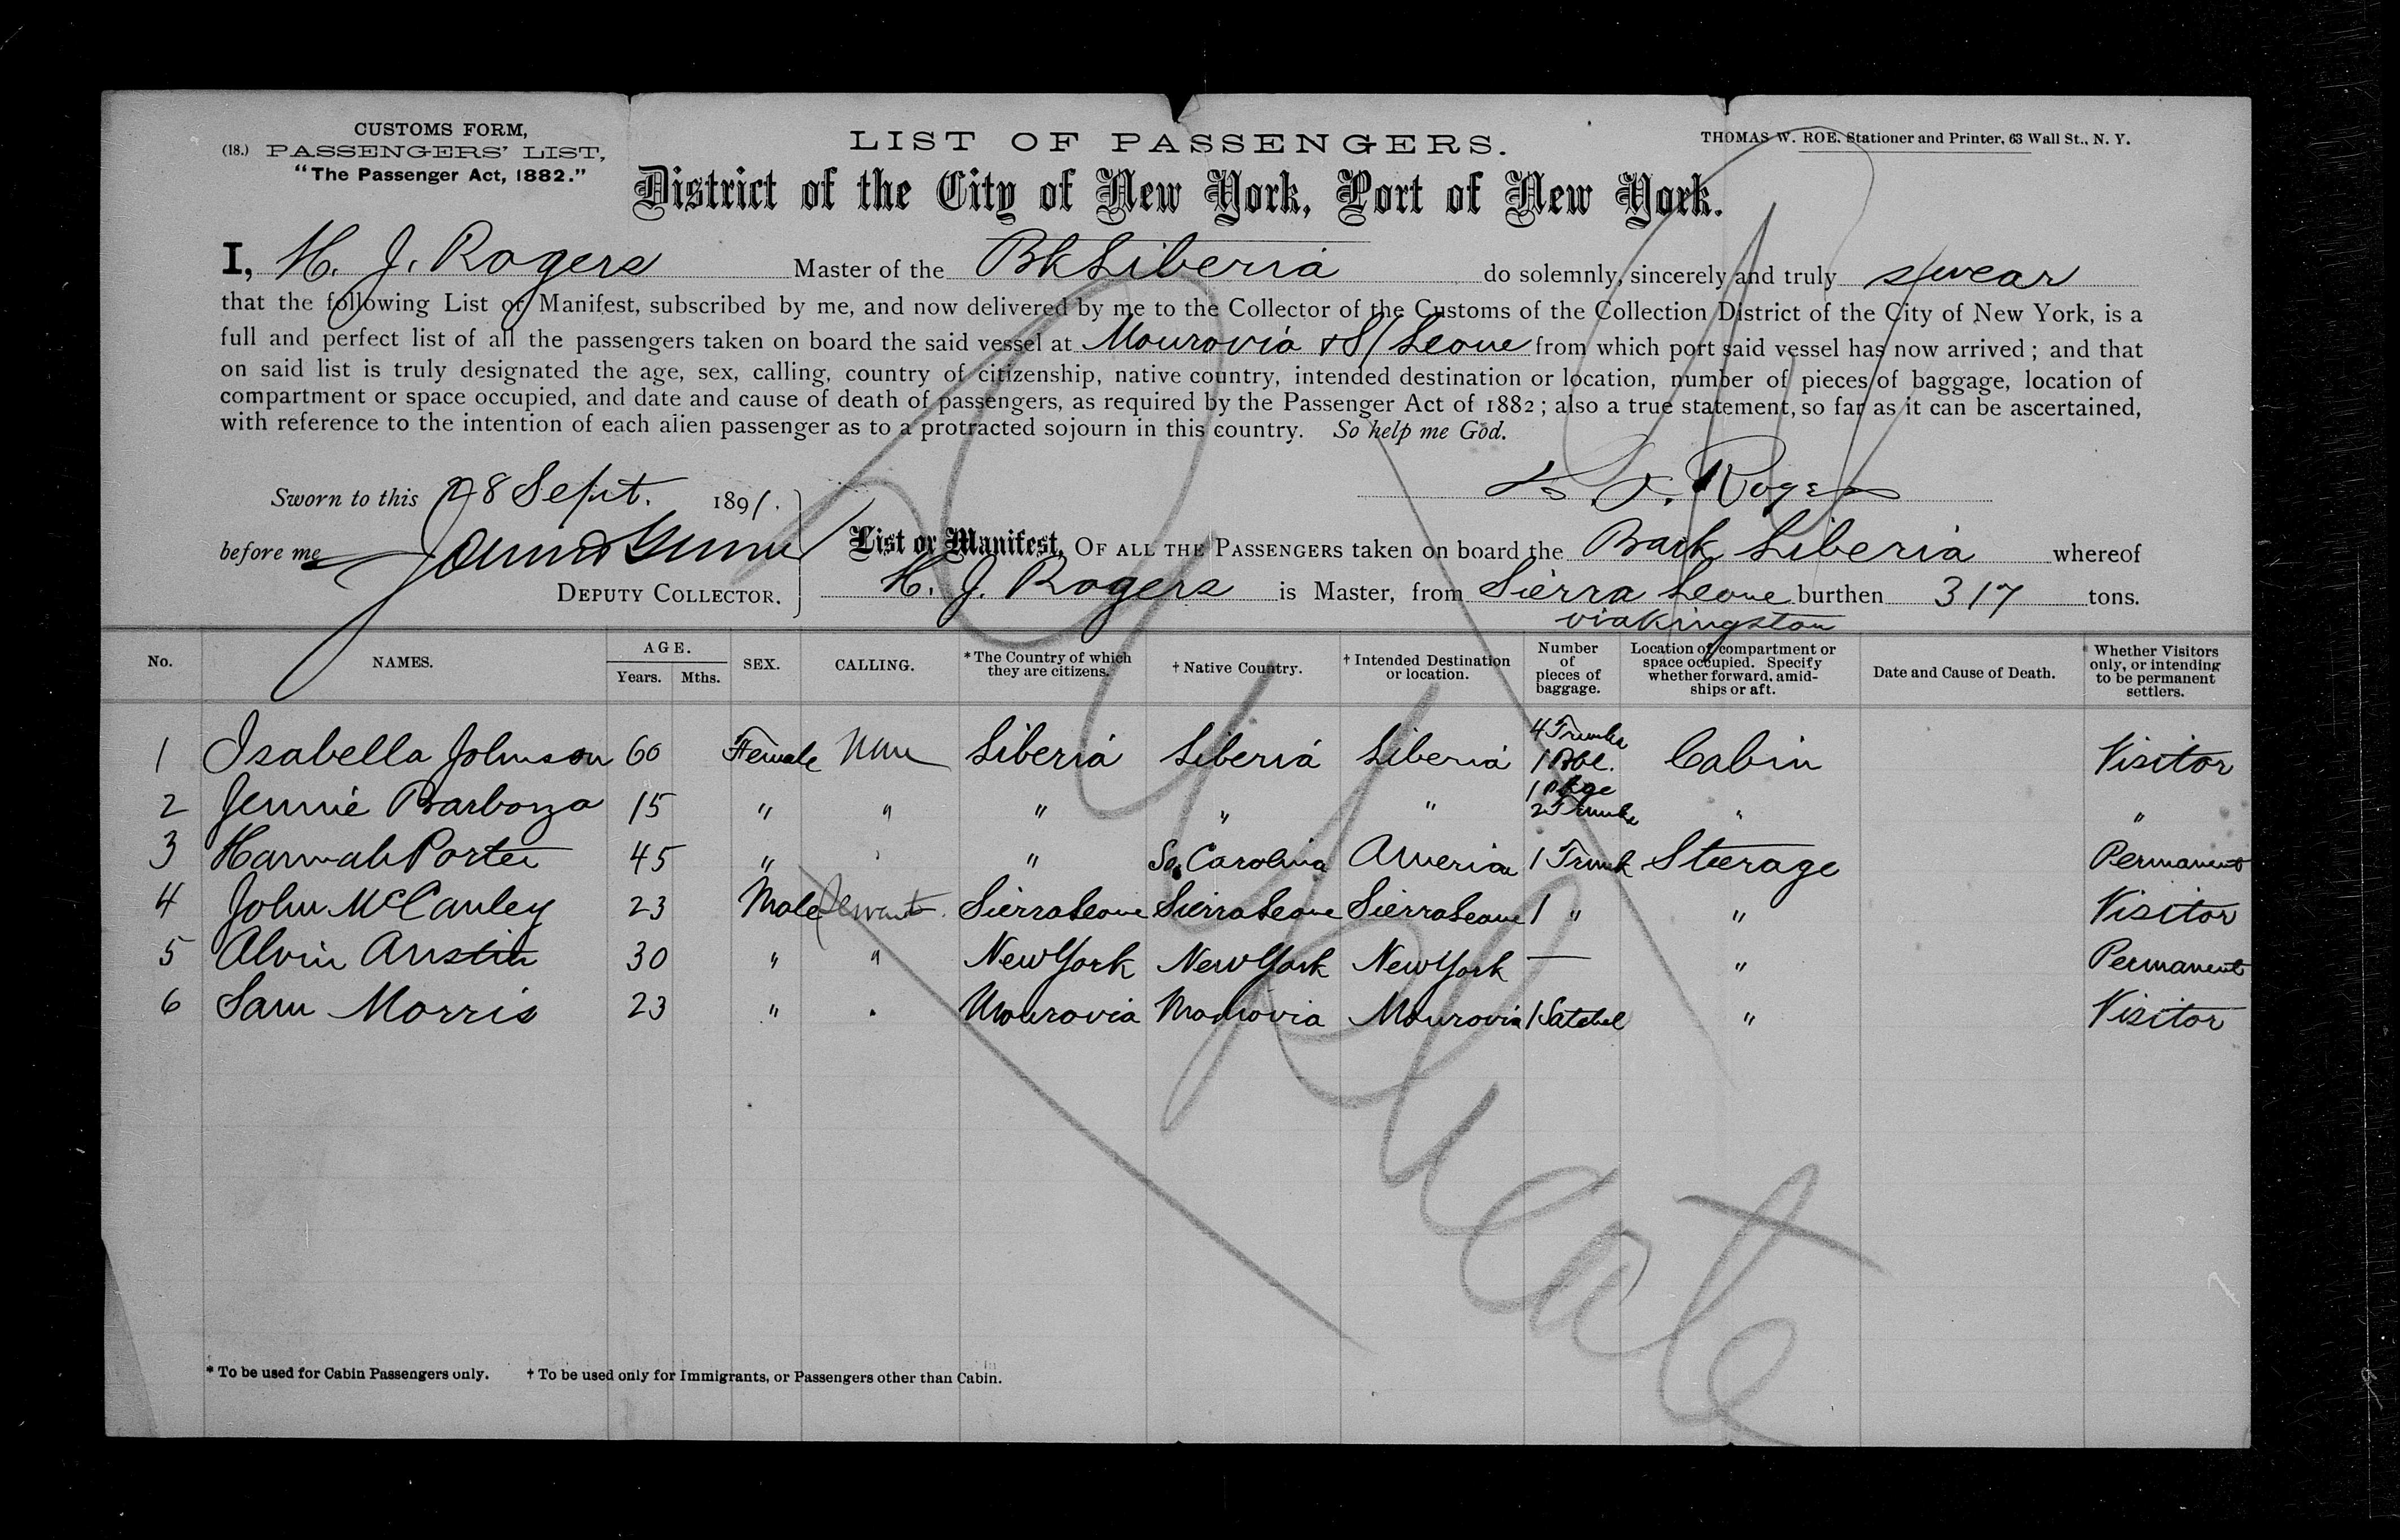 CUSTOMS FORM,
(18.) PASSENGERS' LIST,
"The Passenger Act, 1882."
LIST OF PASSENGERS.
THOMAS W. ROE, Stationer and Printer, 63 Wall St., N. Y.
District of the City of New York, Port of New York.
I, H. J. Rogers Master of the Bk Liberia do solemnly, sincerely and truly swear
that the following List or Manifest, subscribed by me, and now delivered by me to the Collector of the Customs of the Collection District of the City of New York, is a
full and perfect list of all the passengers taken on board the said vessel at Monrovia & S/ Leone from which port said vessel has now arrived; and that
on said list is truly designated the age, sex, calling, country of citizenship, native country, intended destination or location, number of pieces of baggage, location of
compartment or space occupied, and date and cause of death of passengers, as required by the Passenger Act of 1882; also a true statement, so far as it can be ascertained,
with reference to the intention of each alien passenger as to a protracted sojourn in this country. So help me God.
H. J. Rogers
Sworn to this 28 Sept. 1891.
before me
DEPUTY COLLECTOR.
List or Manifest, OF ALL THE PASSENGERS taken on board the Bark Liberia whereof
H. J. Rogers is Master, from Sierra Leone burthen 317 tons.
via Kingston
No. NAMES. AGE. Years. Mths. SEX. CALLING. *The Country of which they are citizens. †Native Country. †Intended Destination or location. Number of pieces of baggage. Location of compartment or space occupied. Specify whether forward, amidships or aft. Date and Cause of Death. Whether Visitors only, or intending to be permanent settlers.
1 Isabella Johnson 60 Female None Liberia Liberia Liberia 4 Trunks 1 Bbl. 1 pkge Cabin Visitor
2 Jennie Barboza 15 " " " " " 2 Trunks " "
3 Hannah Porter 45 " " " So. Carolina America 1 Trunk Steerage Permanent
4 John McCauley 23 Male Servant Sierra Leone Sierra Leone Sierra Leone 1 " " Visitor
5 Alvin Austin 30 " " New York New York New York — " Permanent
6 Sam Morris 23 " " Monrovia Monrovia Monrovia 1 Satchel " Visitor
Duplicate
* To be used for Cabin Passengers only. † To be used only for Immigrants, or Passengers other than Cabin.